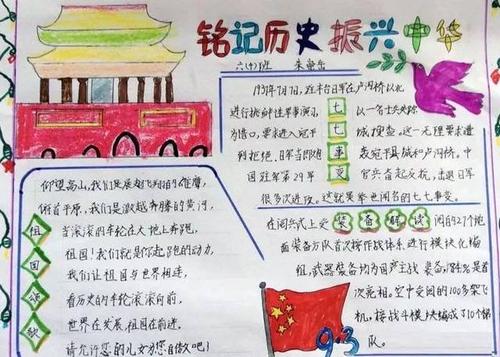 铭记历史 振兴中华
六(十)班
1937年7月7日,驻丰台日军在卢沟桥以北
进行挑衅性军事演习,以一名士兵失踪
为借口,要求进入宛平城搜查,这一无理要求遭
到拒绝,日军当即炮轰宛平县城和卢沟桥。中
国驻军第29军官兵奋起反抗,击退日军
很多次进攻。这就是举世闻名的七七事变。
七七事变
仰望高山,我们是展翅飞翔的雄鹰,
俯首平原,我们是激越奔腾的黄河,
当滚滚的车轮在大地上奔跑,
祖国!我们就是你起跑的动力,
让我们让祖国与世界相连,
看历史的车轮滚滚向前,
世界在发展,祖国在前进,
请允许您的儿女为您自傲吧!
祖国颂歌
在阅兵式上受阅的27个地
面装备方队首次按作战体系进行模块化编
组,武器装备均为国产主战装备,84%是首
次亮相。空中受阅的100多架飞
机,按战斗模块编成了10个梯
队。
装备解读
9·3